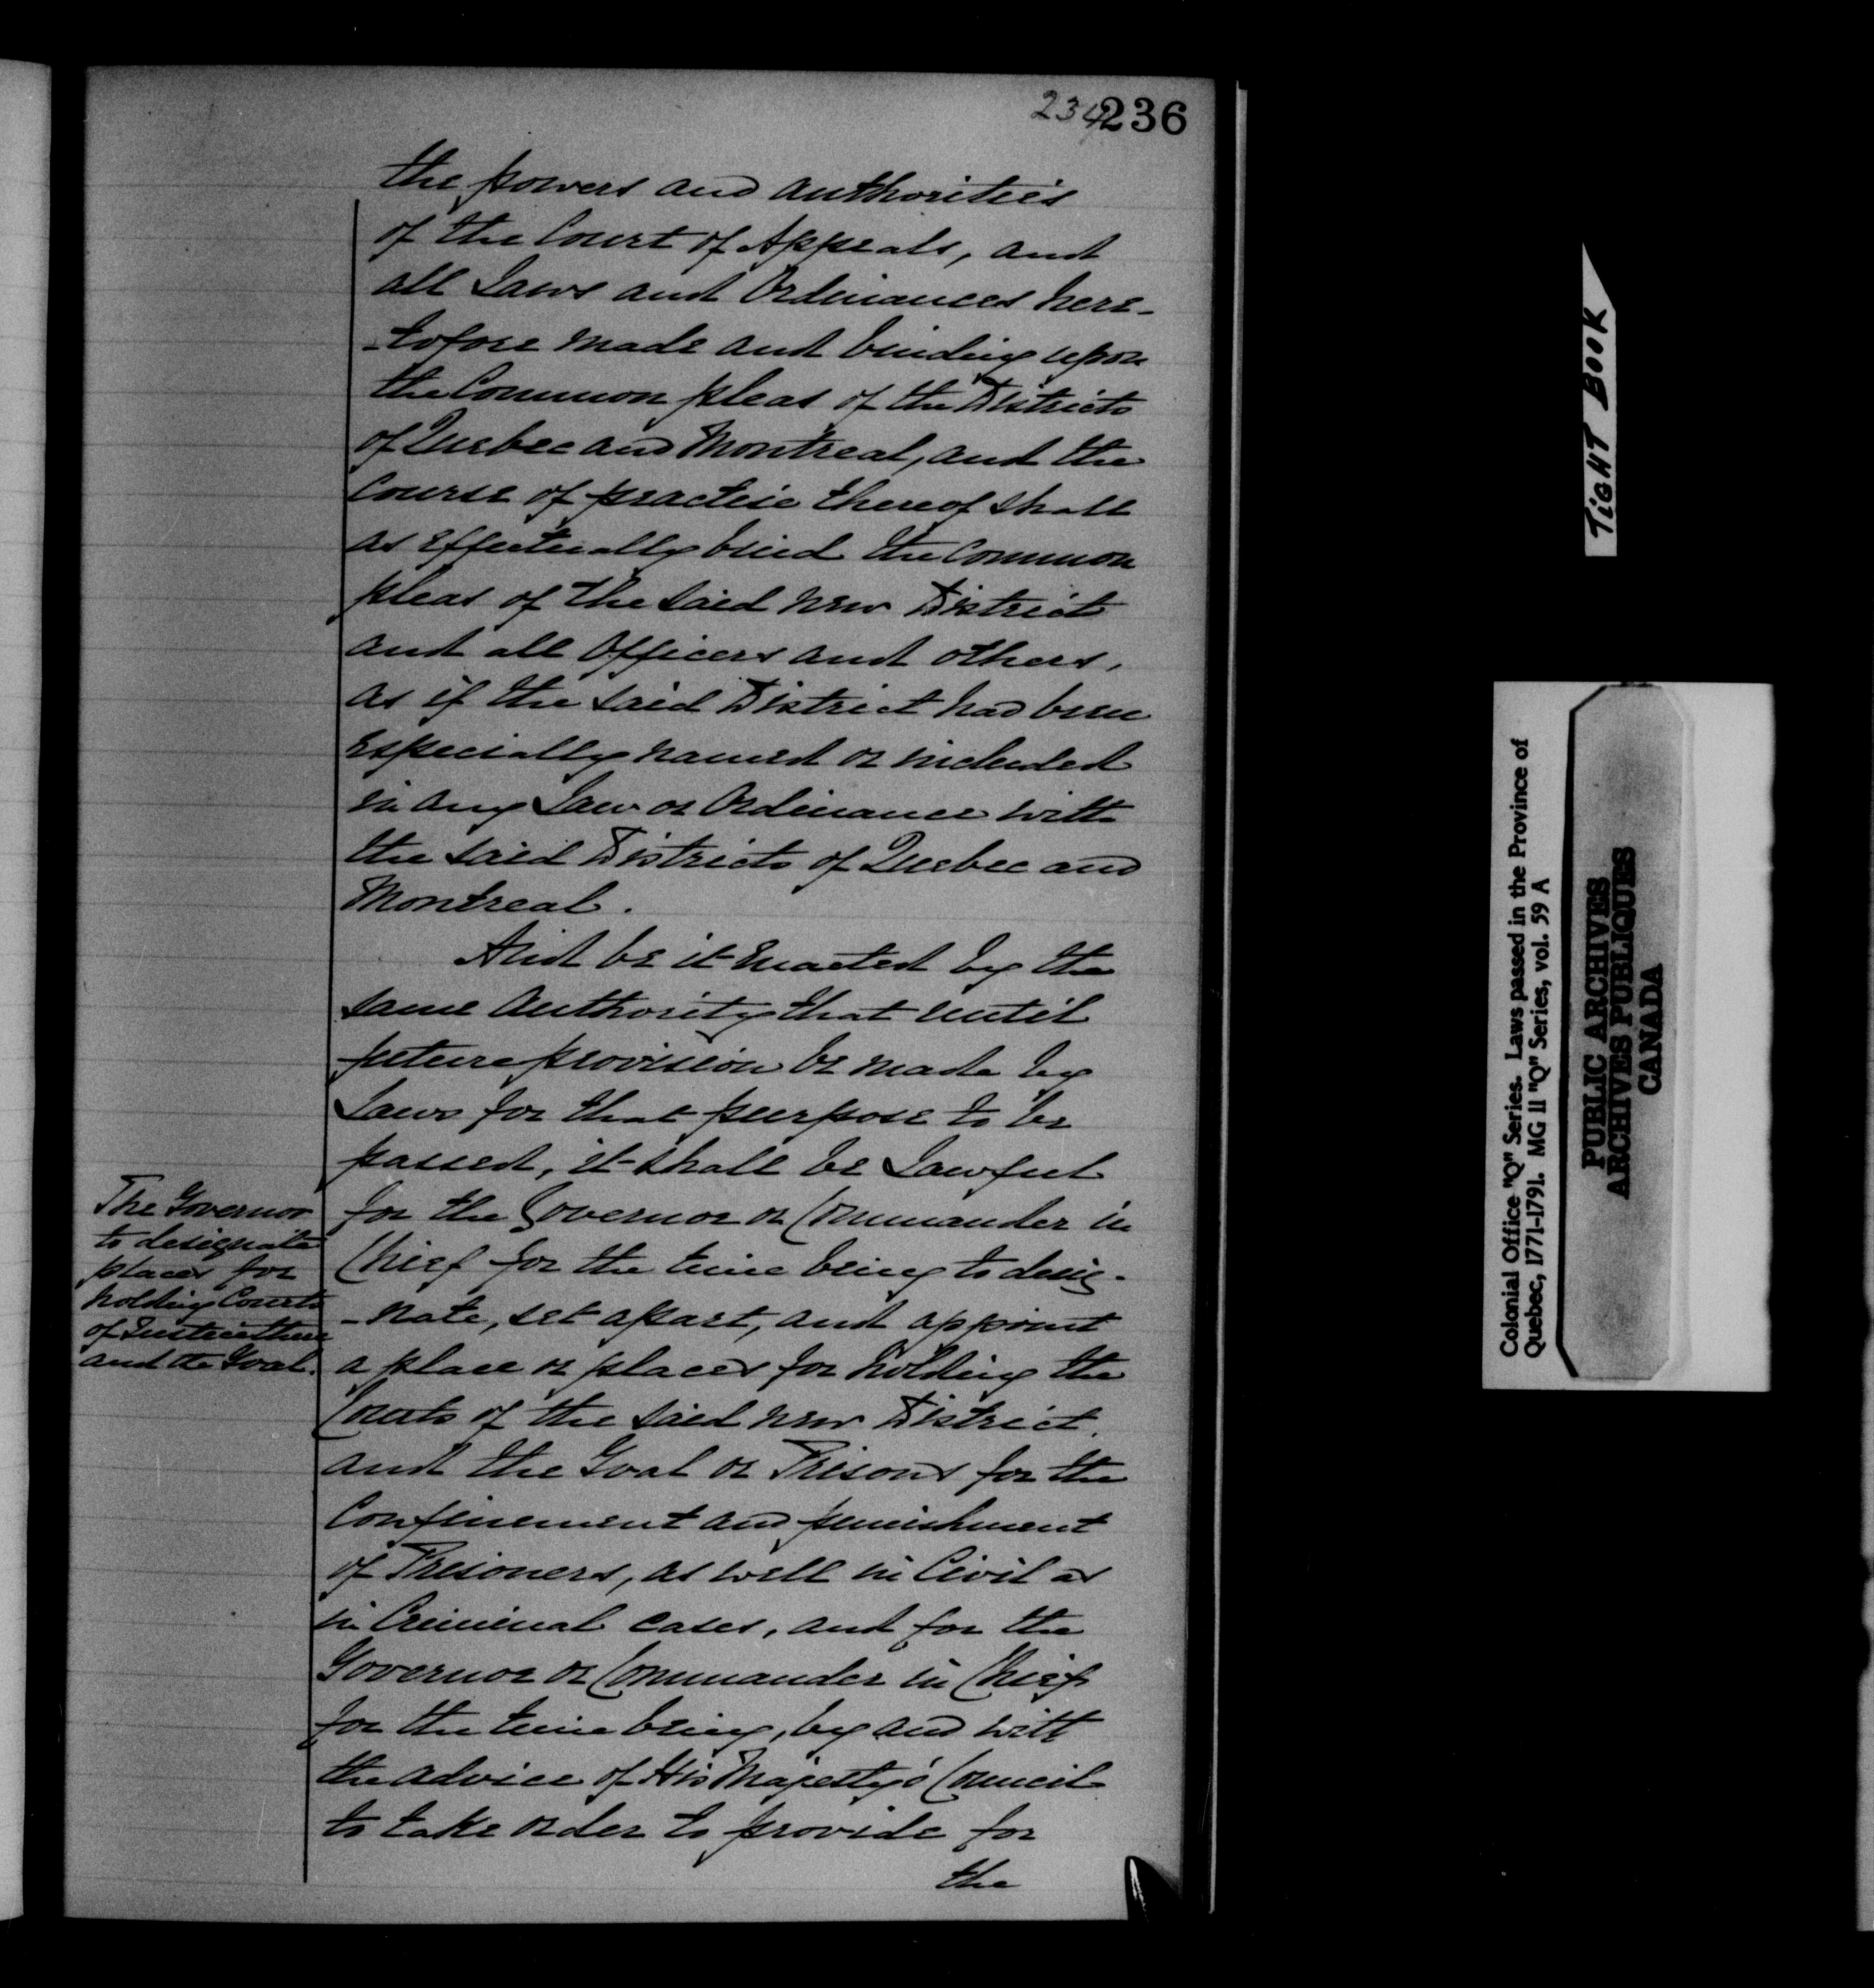 234
236
the powers and authorities
of the Court of Appeals, and
all Laws and Ordinances here-
-tofore made and binding upon
the Common pleas of the Districts
of Quebec and Montreal, and the
Course of practice thereof shall
as effectually bind the Common
pleas of the said new District
and all Officers and others,
as if the said District had been
especially named or included
in any Law or Ordinance with
the said Districts of Quebec and
Montreal.
And be it Enacted by the
same Authority that until
future provision be made by
Laws for that purpose to be
passed, it shall be Lawful
for the Governor or Commander in
Chief for the time being to desig-
-nate, set apart, and appoint
a place or places for holding the
Courts of the said new District,
and the Goal or Prisons for the
Confinement and punishment
of Prisoners, as well in Civil as
in Criminal cases, and for the
Governor or Commander in Chief
for the time being, by and with
the advice of His Majesty's Council
to take order to provide for
the
The Governor
to designate
places for
holding Courts
of Justice there
and the Goal.
TIGHT BOOK
Colonial Office "Q" Series. Laws passed in the Province of
Quebec, 1771-1791. MG 11 "Q" Series, vol. 59 A
PUBLIC ARCHIVES
ARCHIVES PUBLIQUES
CANADA